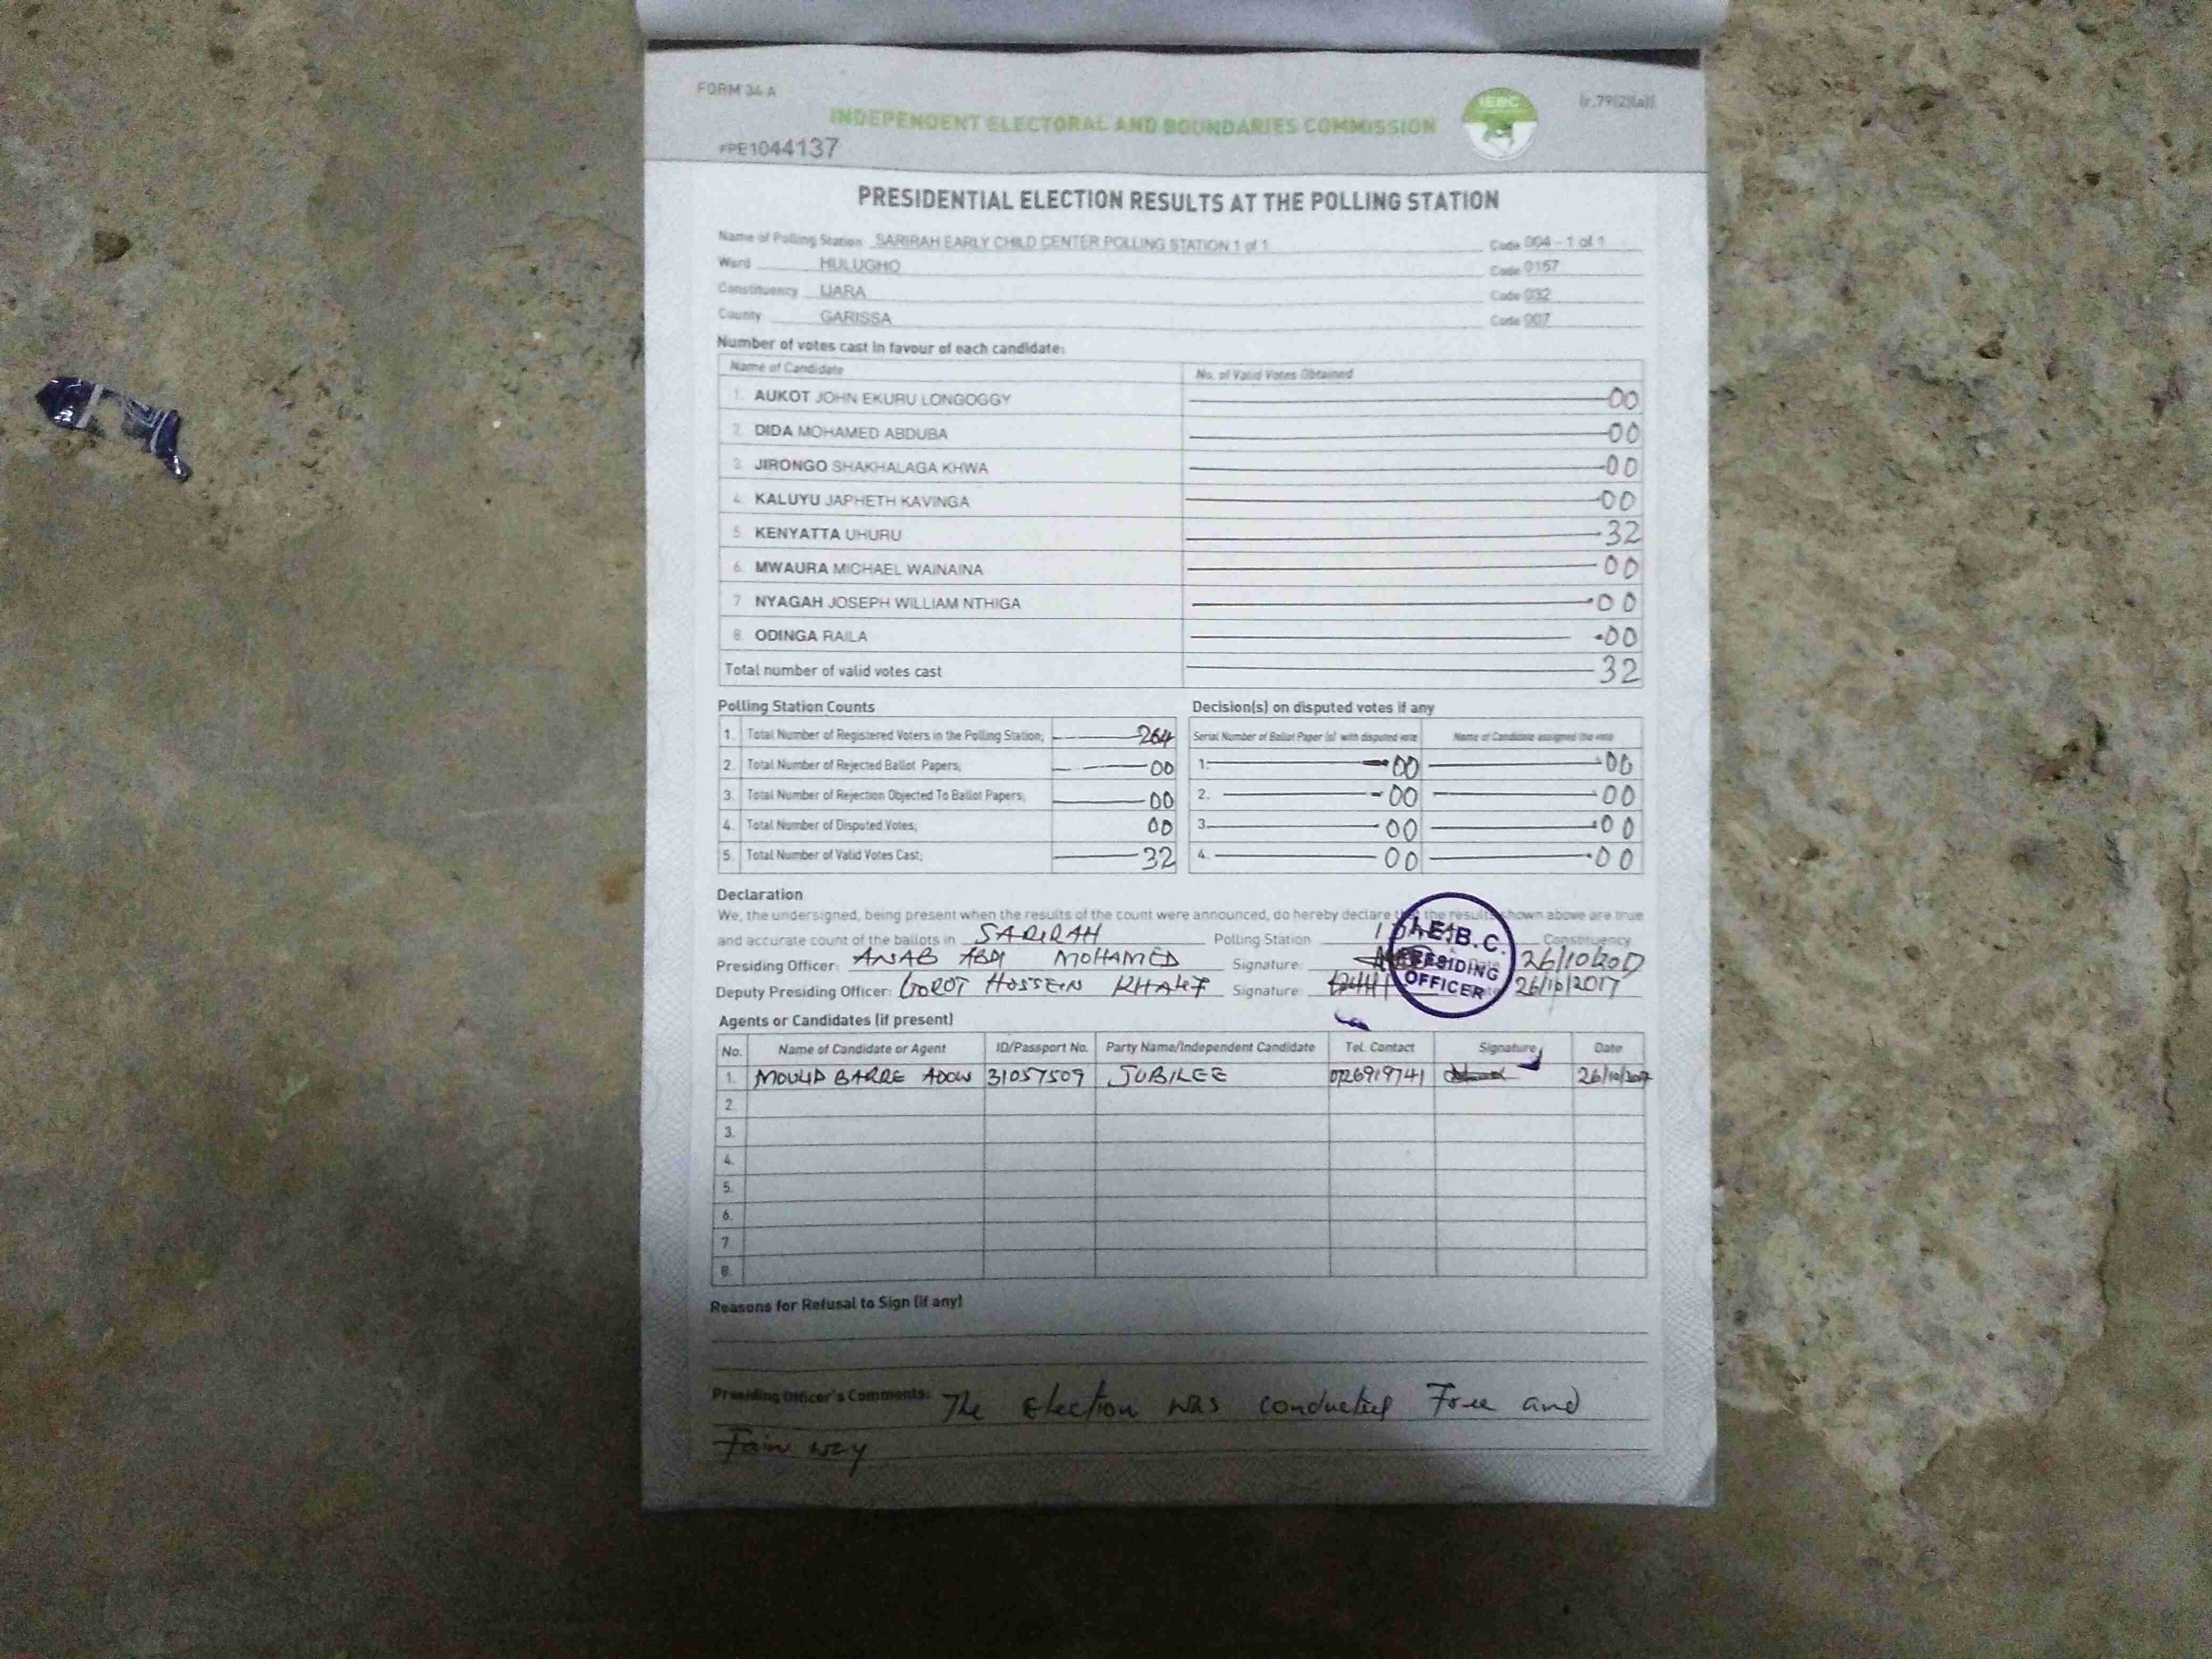 FORM 34 A
(r.79(2)(a))
INDEPENDENT ELECTORAL AND BOUNDARIES COMMISSION
IEBC
FPE1044137
PRESIDENTIAL ELECTION RESULTS AT THE POLLING STATION
Name of Polling Station SARIRAH EARLY CHILD CENTER POLLING STATION 1 of 1 Code 004 - 1 of 1
Ward HULUGHO Code 0157
Constituency IJARA Code 032
County GARISSA Code 007
Number of votes cast in favour of each candidate:
Name of Candidate No. of Valid Votes Obtained
1. AUKOT JOHN EKURU LONGOGGY 00
2. DIDA MOHAMED ABDUBA 00
3. JIRONGO SHAKHALAGA KHWA 00
4. KALUYU JAPHETH KAVINGA 00
5. KENYATTA UHURU 32
6. MWAURA MICHAEL WAINAINA 00
7 NYAGAH JOSEPH WILLIAM NTHIGA 00
8. ODINGA RAILA 00
Total number of valid votes cast 32
Polling Station Counts Decision(s) on disputed votes if any
1. Total Number of Registered Voters in the Polling Station; 264 Serial Number of Ballot Paper (s) with disputed vote Name of Candidate assigned the vote
2. Total Number of Rejected Ballot Papers; 00 1. 00 00
3. Total Number of Rejection Objected To Ballot Papers; 00 2. 00 00
4. Total Number of Disputed Votes; 00 3. 00 00
5. Total Number of Valid Votes Cast; 32 4. 00 00
Declaration
We, the undersigned, being present when the results of the count were announced, do hereby declare that the results shown above are true
and accurate count of the ballots in SARIRAH Polling Station Constituency
Presiding Officer: ANAB ABDI MOHAMED Signature: Date 26/10/2017
Deputy Presiding Officer: HUSSEIN KHALIF Signature: Date 26/10/2017
I.E.B.C.
PRESIDING
OFFICER
Agents or Candidates (if present)
No. Name of Candidate or Agent ID/Passport No. Party Name/Independent Candidate Tel. Contact Signature Date
1. MOULID BARRE ADOW 31057509 JUBILEE 0726919741 26/10/2017
2.
3.
4.
5.
6.
7.
8.
Reasons for Refusal to Sign (if any)
Presiding Officer's Comments: The Election was conducted Free and
Fair way